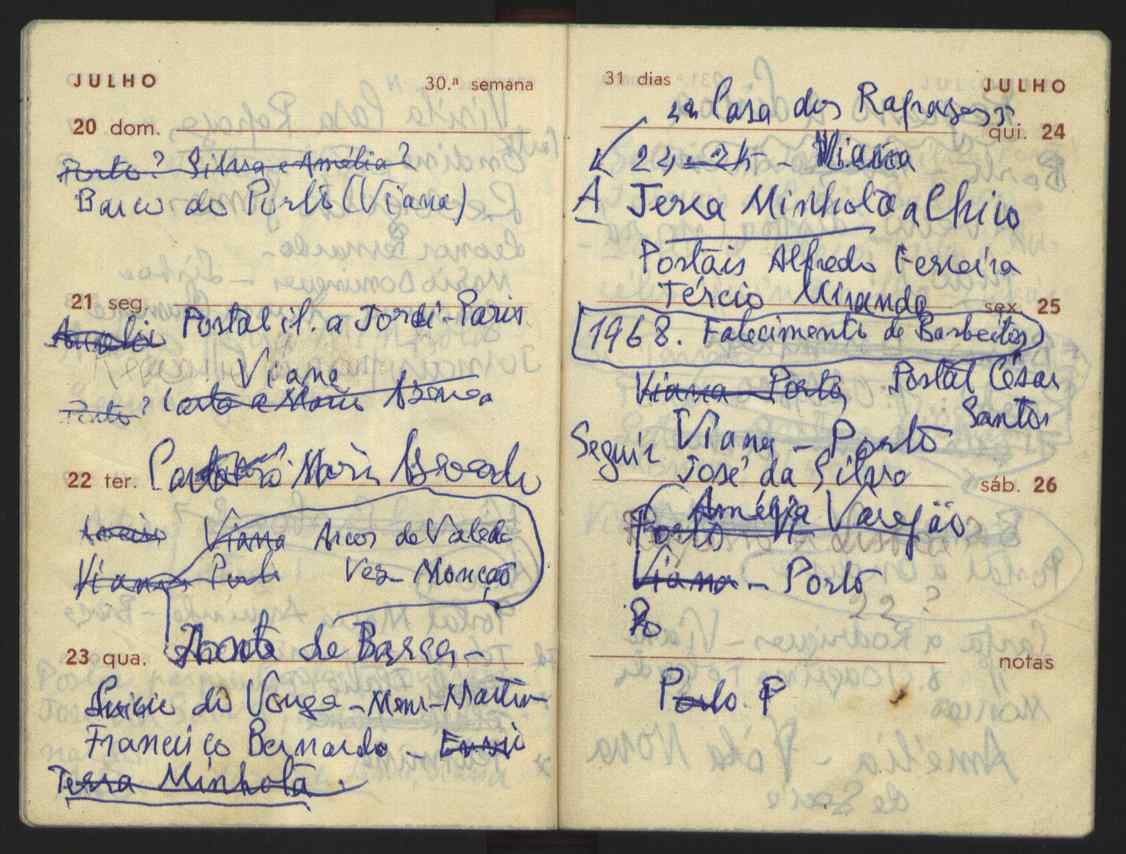 JULHO 30.ª semana
20 dom.
Porto? Silva e Amélia?
Barco do Porto (Viana)
21 seg.
Postal il. a Jordi-Paris
Viana
Porto? Carta a Mario
22 ter.
Mario
Viana Arcos de Valde
Viana Porto Vez - Monção
Ponte de Barca -
23 qua.
do Vouga - Mem-Martin
Francisco Bernardo -
Terra Minhota.
31 dias JULHO
Casa dos Rapazes
qui. 24
24 - Viana
A Terra Minhota a Chico
Postais Alfredo Ferreira
Tércio Miranda
sex. 25
1968. Falecimento de Barbeitos
Viana - Porto Postal César
Santos
Seguir Viana - Porto
José da Silva
sáb. 26
Amélia Varejão
Porto
Viana - Porto
Po
notas
Porto. P